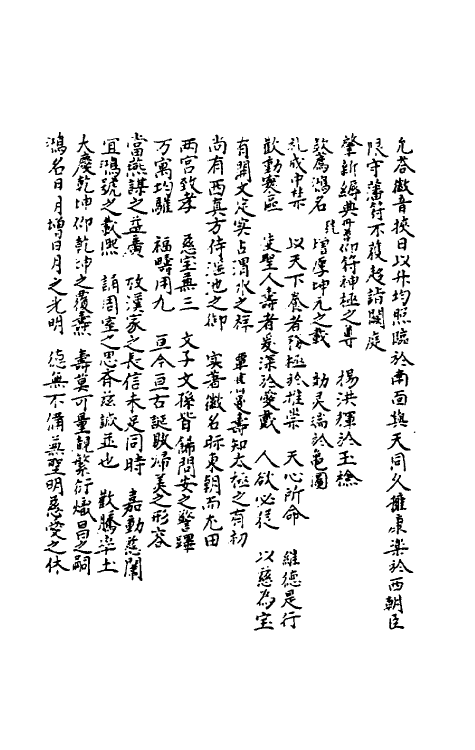 允荅徽音揆日以升均照臨於南面與天同久推康樂於西朝臣
限守藩符不獲趍詣闕庭
肇新縟典丹書仰符神極之尊　揚洪輝於玉檢
茲為鴻名　增厚坤元之載　劝灵鴻於龜圖
礼成中禁　以天下養者務極於推崇　天心所命　維德是行
歡動寰區　使聖人壽者爰深於愛戴　人欲必從　以慈為宝
有開文定实占渭水之祥　單其壽知太極之有初
尚有西真方侍瑶池之御　实書徽名昉東朝而尤田
两宫致孝　慈宝無三　文子文孫皆歸問安之警蹕
万寓均驩　福畴用九　亘今亘古誕敭帰美之形容
當燕謀之益廣　攷漢家之長信未足同時　嘉動慈闈
宜鴻號之載熙　誦周室之思齊茲誠並也　歡騰率土
大慶乾坤仰乾坤之覆燾　壽莫可量觀繁衍熾昌之嗣
鴻名日月增日月之光明　德無不備兼聖明慈愛之休